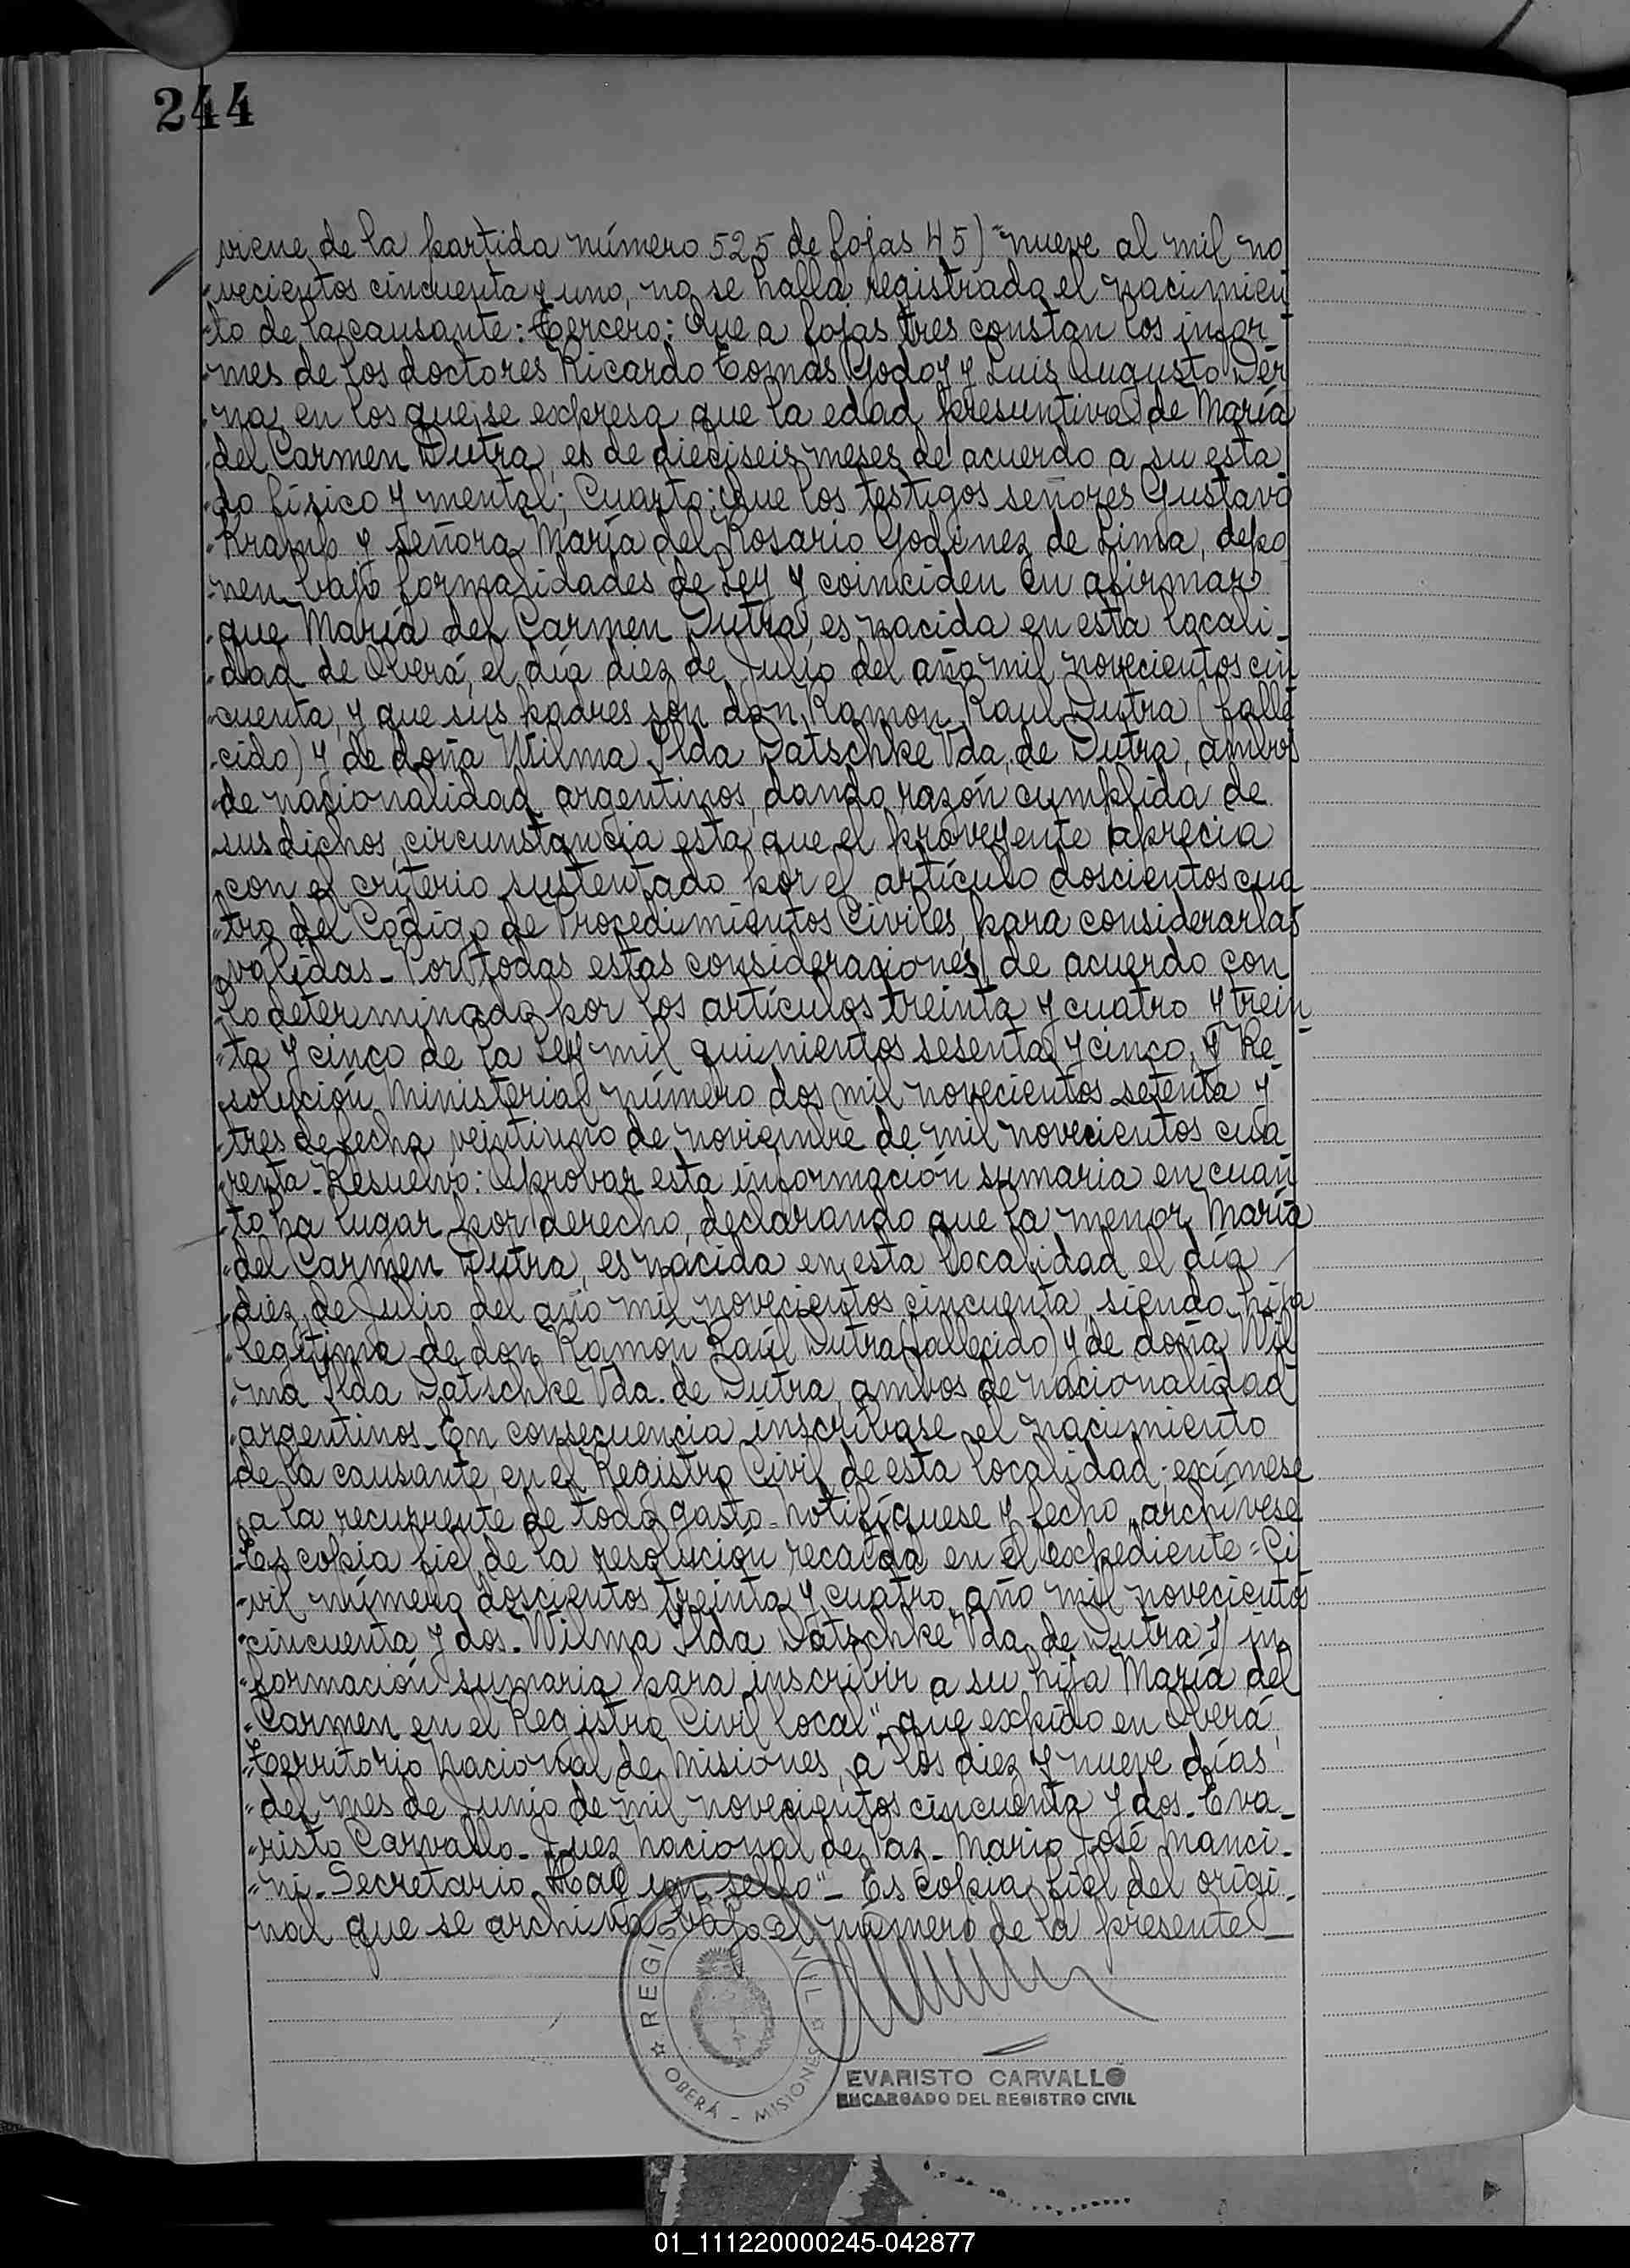 244
viene de la partida número 525 de fojas 45) "nueve al mil no
"vecientos cincuenta y uno, no se halla registrado el nacimien
"to de la causante: Tercero: Que a fojas tres constan los infor-
"mes de los doctores Ricardo Tomás Godoy y Luis Augusto Der
"na en los que se expresa que la edad presuntiva de María
"del Carmen Dutra, es de dieciseis meses de acuerdo a su esta
"do físico y mental; Cuarto: Que los testigos señores Gustavo
"Kramp y señora María del Rosario Godinez de Lima, depo
"nen bajo formalidades de Ley y coinciden en afirmar
"que María del Carmen Dutra, es nacida en esta locali-
"dad de Oberá, el día diez de Julio del año mil novecientos cin
"cuenta, y que sus padres son don Ramon Raul Dutra (falle
"cido) y de doña Wilma Ilda Datschke Vda. de Dutra, ambos
"de nacionalidad argentinos, dando razón cumplida de
"sus dichos, circunstancia esta que el proveyente aprecia
"con el criterio sustentado por el artículo doscientos cua
"tro del Código de Procedimientos Civiles, para considerarlas
"validas_ Por todas estas consideraciones, de acuerdo con
"lo determinado por los artículos treinta y cuatro y trein
"ta y cinco de la Ley mil quinientos sesenta y cinco, y Re
"solución Ministerial número dos mil novecientos setenta y
"tres de fecha veintiuno de noviembre de mil novecientos cua
"renta_ Resuelvo: Aprovar esta información sumaria en cuan
"to ha lugar por derecho, declarando que la menor María
"del Carmen Dutra, es nacida en esta localidad el día
"diez de Julio del año mil novecientos cincuenta, siendo hija
"legítima de don Ramón Raúl Dutra (fallecido) y de doña Wil
"ma Ilda Datschke Vda. de Dutra, ambos de nacionalidad
"argentinos_ En consecuencia inscribase el nacimiento
"de la causante, en el Registro Civil de esta localidad; exímese
"a la recurrente de todo gasto_ Notifíquese y fecho, archívese
"Es copia fiel de la resolución recaída en el expediente = Ci
"vil número doscientos treinta y cuatro, año mil novecientos
"cincuenta y dos_ Wilma Ilda Datschke Vda de Dutra S/ in
"formación sumaria para inscribir a su hija María del
"Carmen en el Registro Civil local", que expido en Oberá,
"Territorio Nacional de Misiones, a los diez y nueve días
"del mes de Junio de mil novecientos cincuenta y dos_ Eva_
"risto Carvallo_ Juez Nacional de Paz_ Mario José Manci_
"ni_ Secretario_ Hay un sello"_ Es copia fiel del origi_
nal que se archiva bajo el número de la presente_
REGISTRO CIVIL
OBERÁ - MISIONES
EVARISTO CARVALLO
ENCARGADO DEL REGISTRO CIVIL
01_111220000245-042877